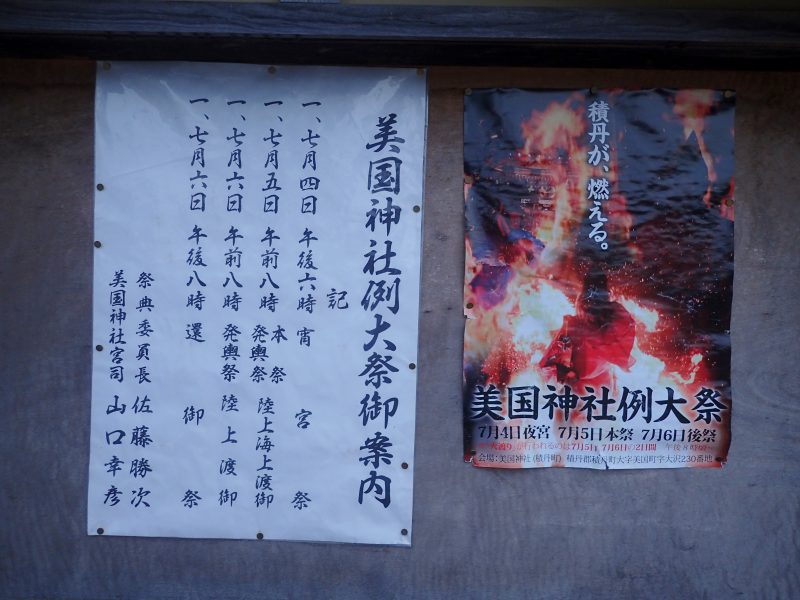 美国神社例大祭御案内
記
一、七月四日 午後六時 宵宮祭
一、七月五日 午前八時 本祭 発輿祭 陸上海上渡御
一、七月六日 午前八時 発輿祭 陸上渡御
一、七月六日 午後八時 還御祭
祭典委員長 佐藤勝次
美国神社宮司 山口幸彦
積丹が、燃える。
美国神社例大祭
7月4日夜宮 7月5日本祭 7月6日後祭
火渡りが行われるのは7月5日、7月6日の2日間 午後8時頃〜
会場:美国神社(積丹町) 積丹郡積丹町大字美国町字大沢230番地